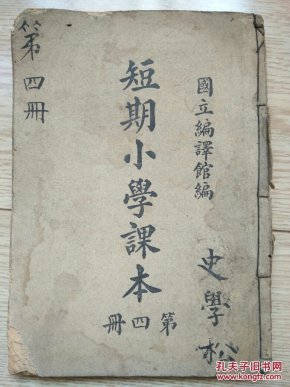 國立編譯館編
短期小學課本
第四册
第四册
史學松